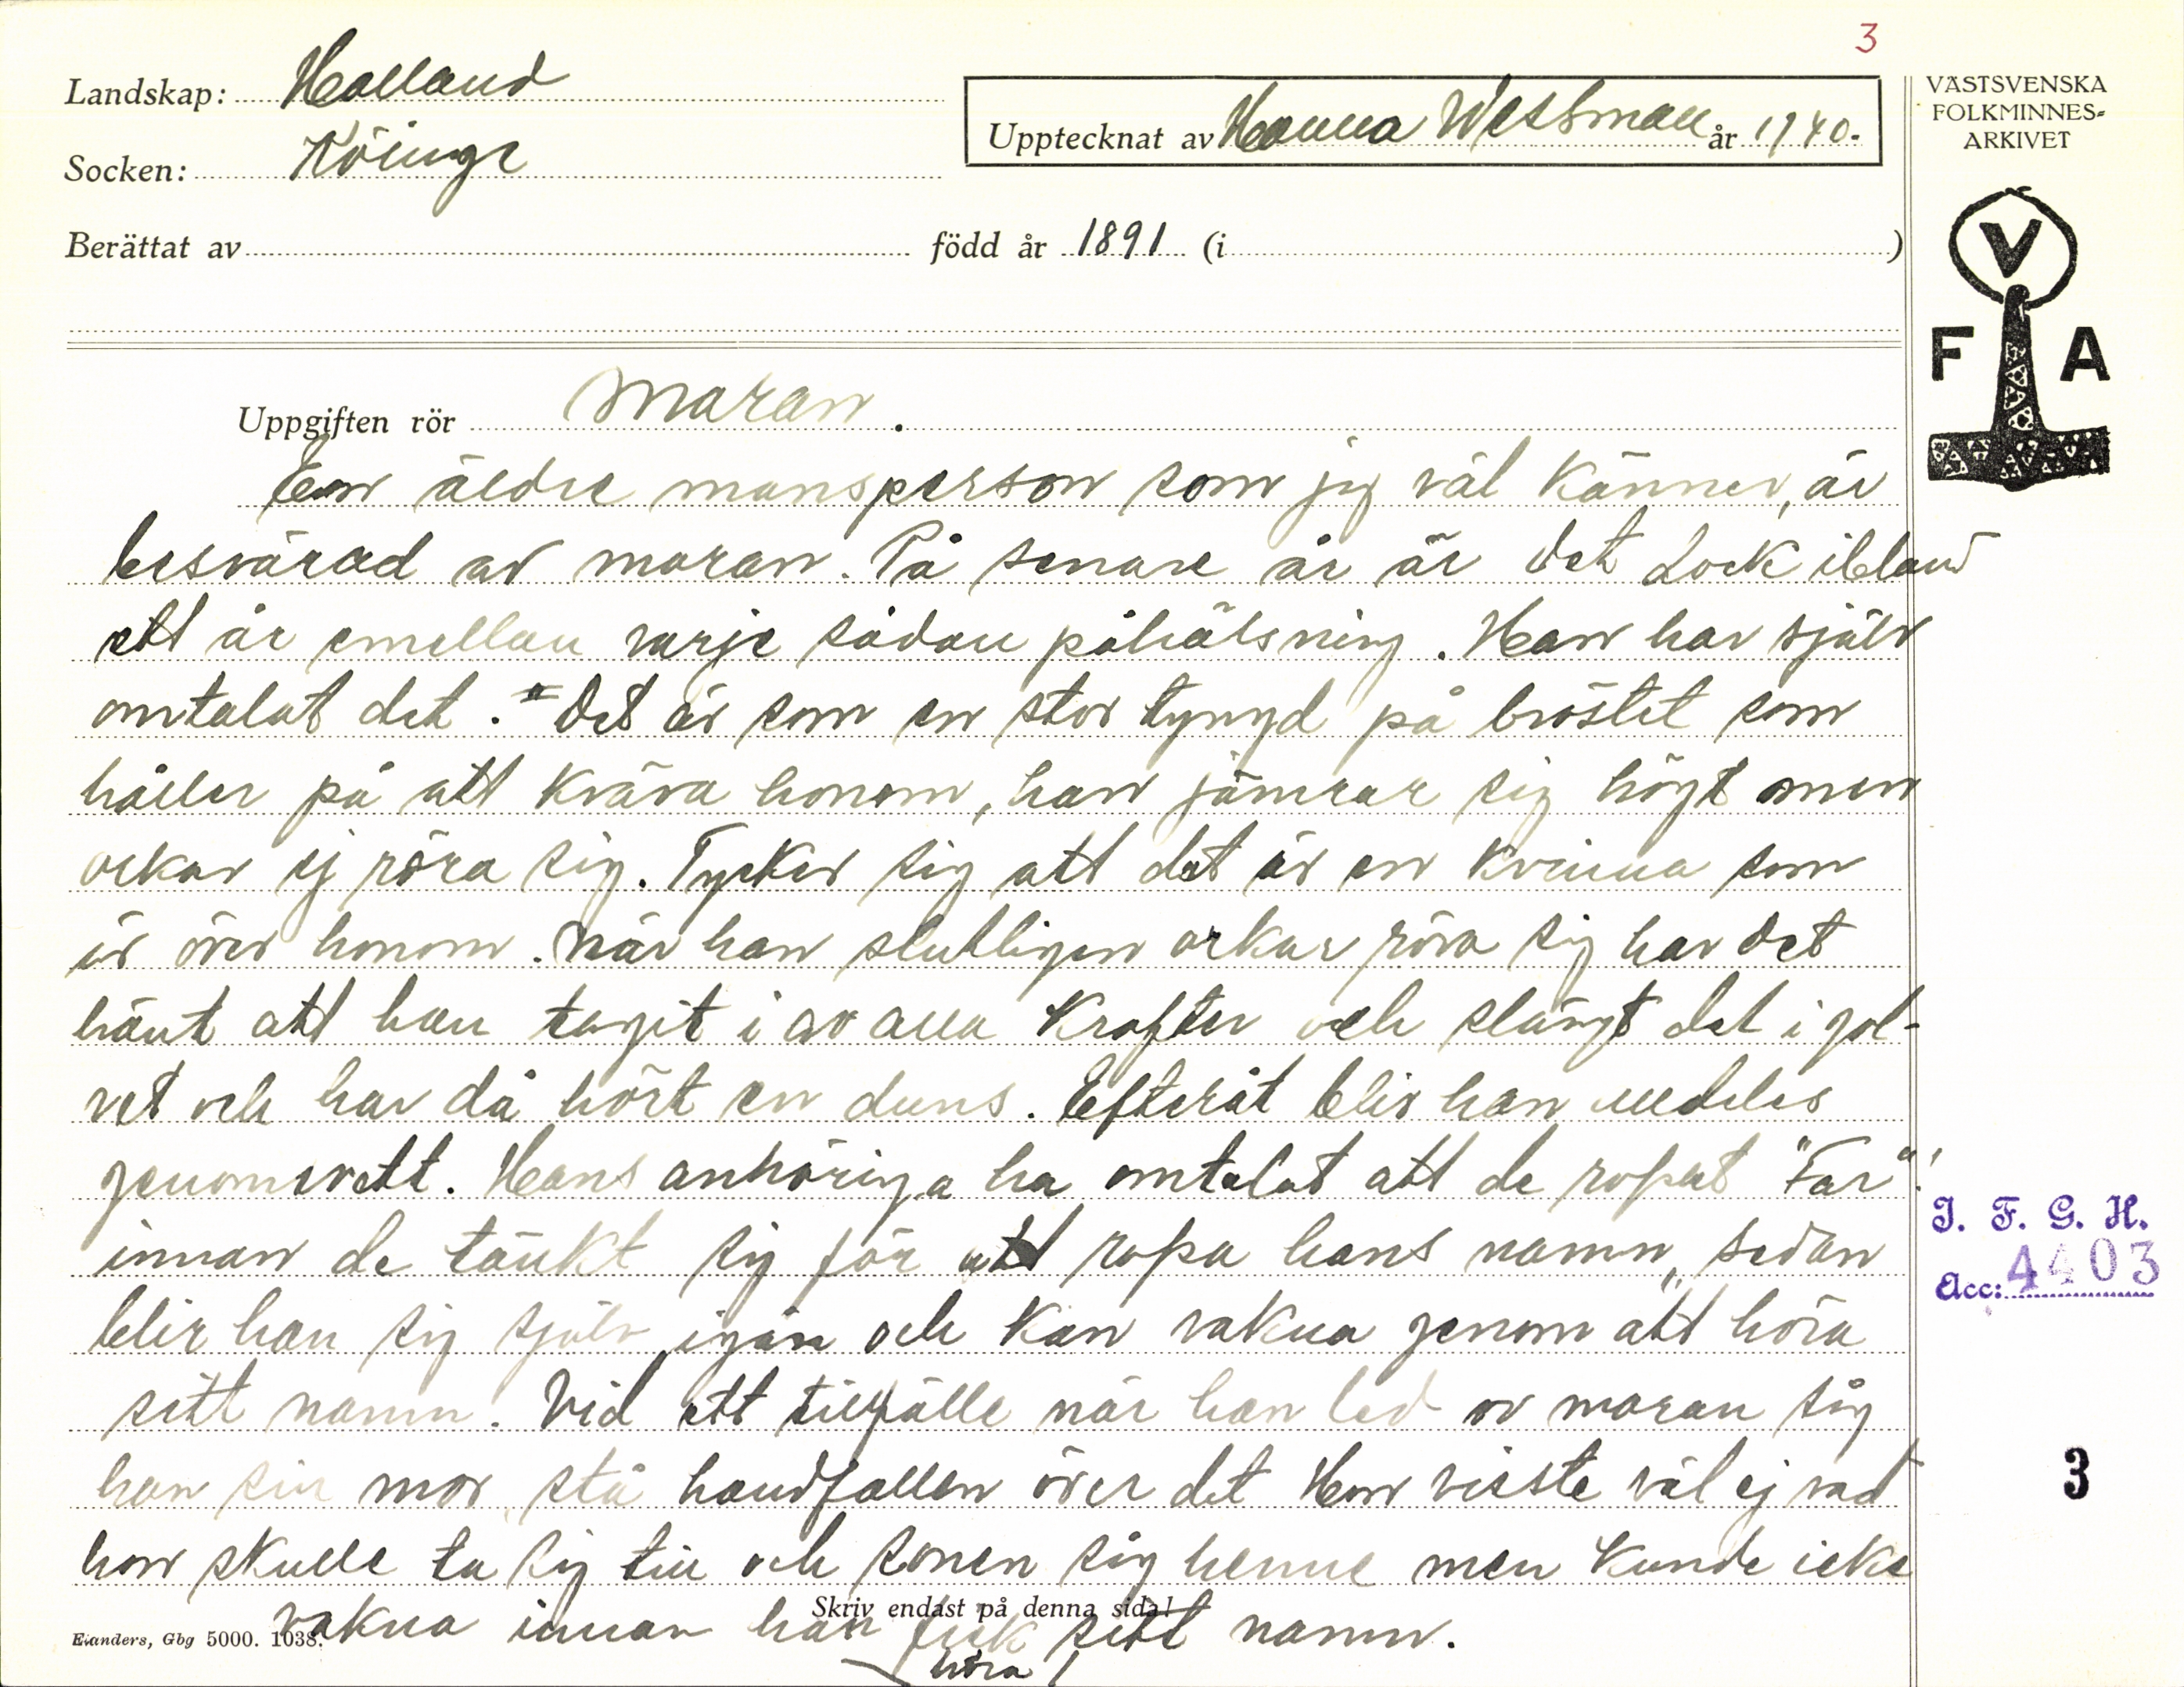 3
Landskap: Halland
Upptecknat av Hanna Westman år 1940.
Socken: Köinge
Berättat av född år 1891 (i )
VÄSTSVENSKA
FOLKMINNES-
ARKIVET
V
F A
Uppgiften rör Maran.
En äldre mansperson som jag väl känner, är
besvärad av maran. På senare år är det dock ibland
ett år emellan varje sådan påhälsning. Han har själv
omtalat det. "Det är som en stor tyngd på bröstet som
håller på att kväva honom, han jämrar sig högt men
orkar ej röra sig. Tycker sig att det är en kvinna som
är över honom. När han slutligen orkar röra sig har det
hänt att han tagit i av alla krafter och slängt det i gol-
vet och har då hört en duns. Efteråt blir han alldeles
genomsvett. Hans anhöriga ha omtalat att de ropat "Far"!
innan de tänkt sig för att ropa hans namn, sedan
blir han sig själv igän och kan vakna genom att höra
sitt namn. Vid ett tillfälle när han led av maran såg
han sin mor stå handfallen över det Hon visste väl ej vad
hon skulle ta sig till och sonen såg henne men kunde icke
vakna innan han fick sitt namn.
höra
Skriv endast på denna sida!
Elanders, Gbg 5000. 1038.
I. F. G. H.
Acc: 4403
3